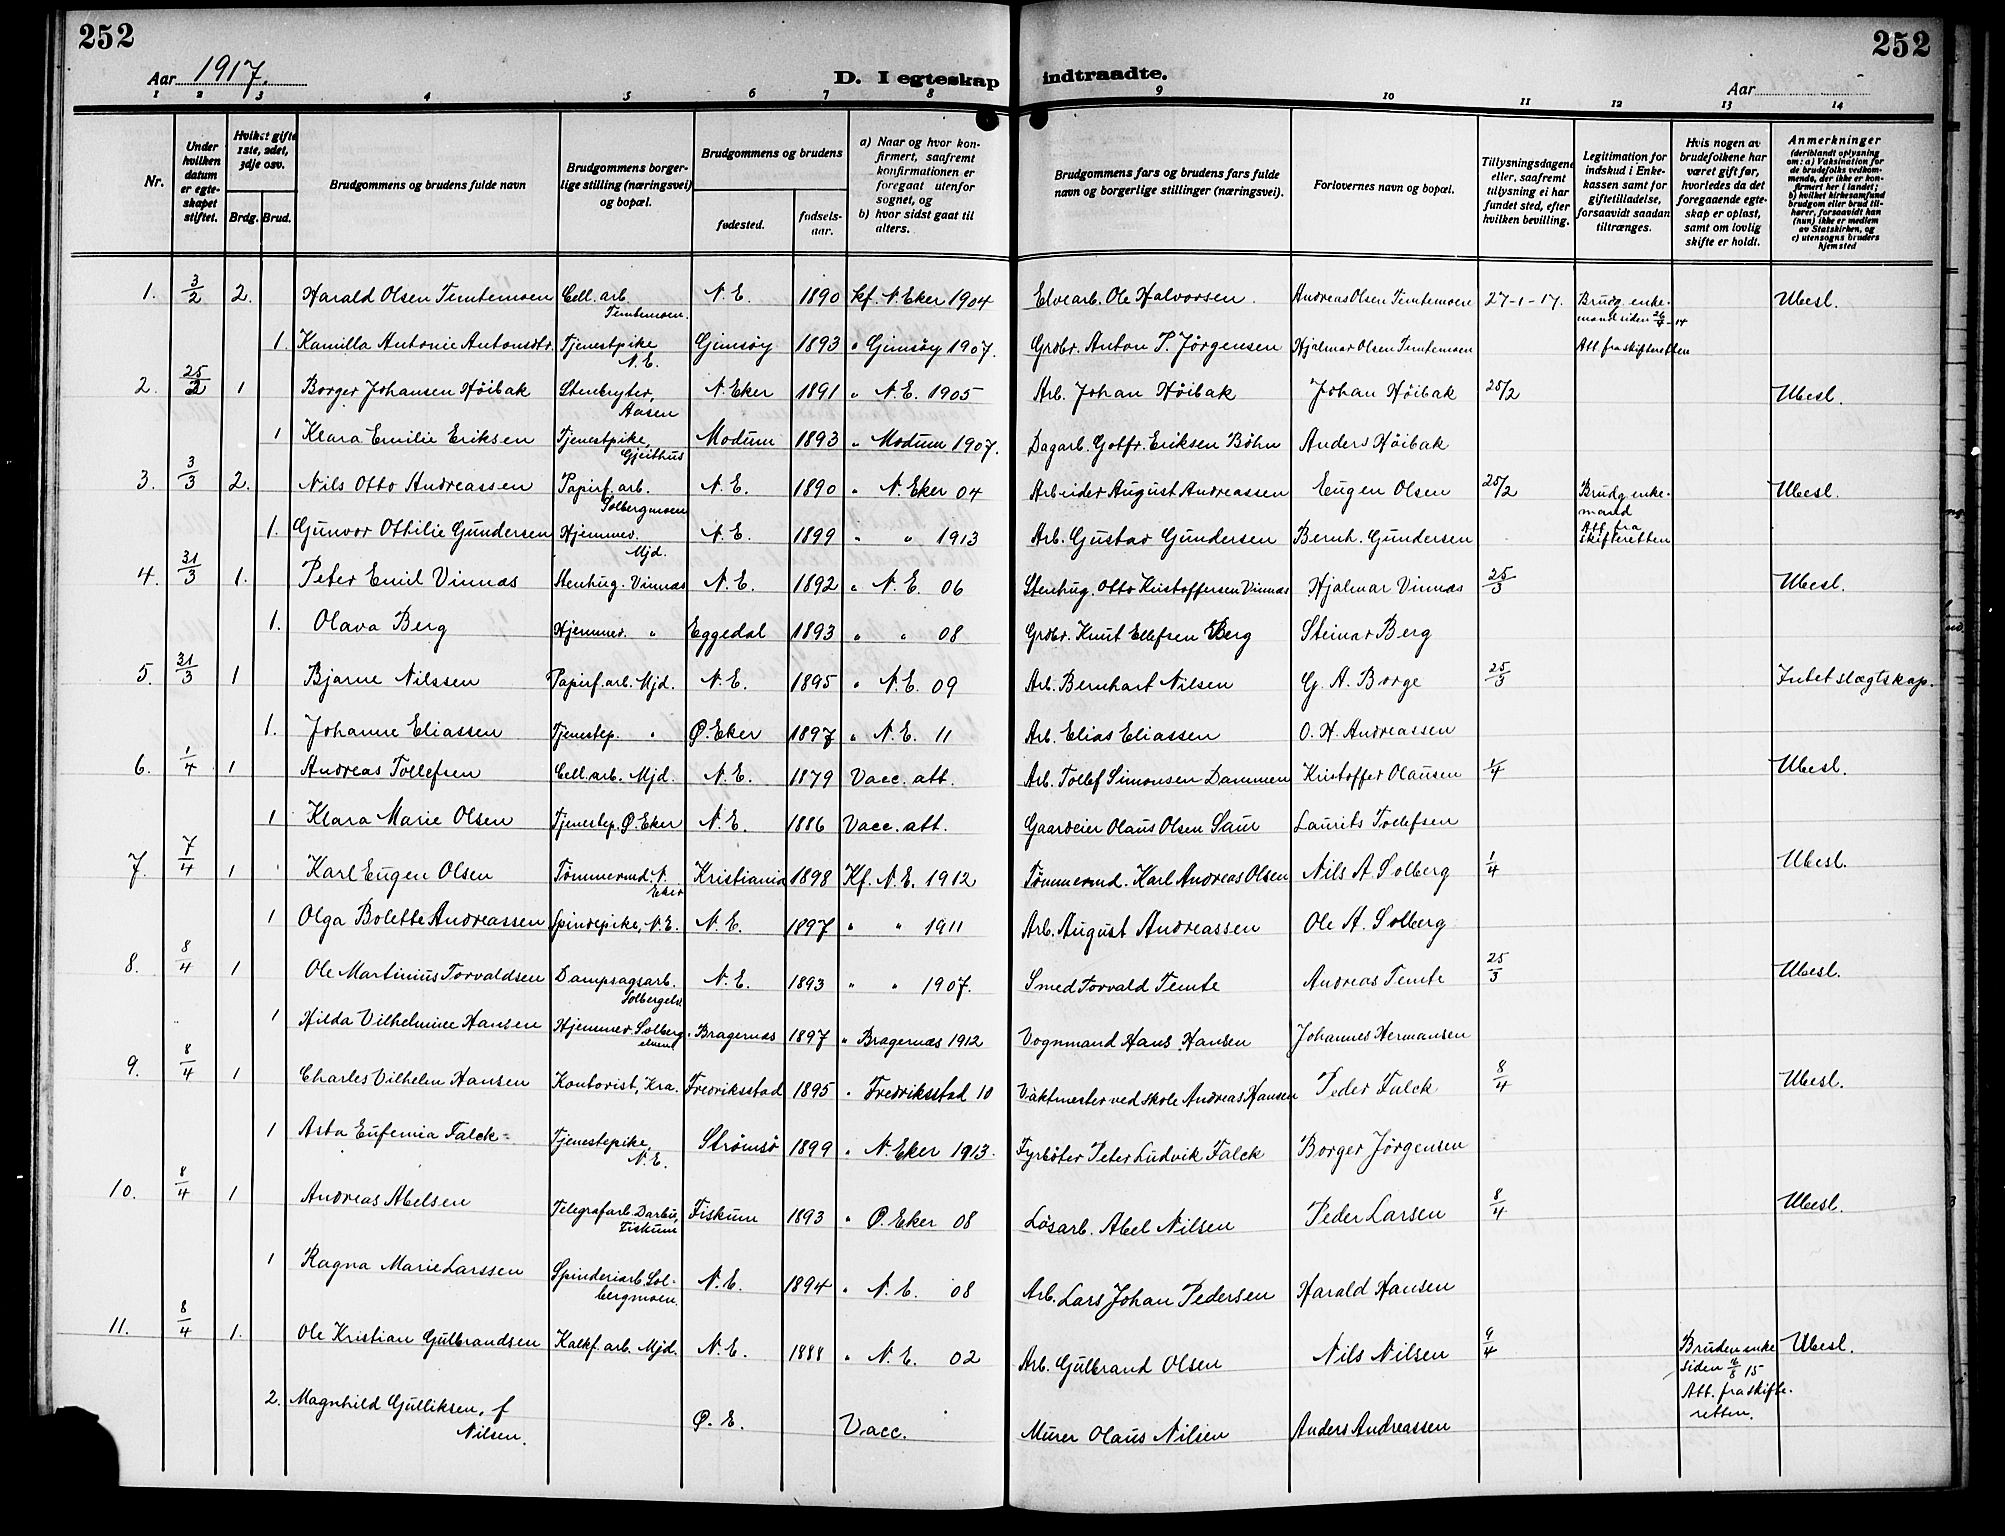 252
252
Aar 1917.
D. I egteskap indtraadte.
Aar
1 2 3 4 5 6 7 8 9 10 11 12 13 14
Nr.
Under hvilken datum er egteskapet stiftet.
Hvilket gifte 1ste, 2det, 3dje osv.
Brdg. Brud.
Brudgommens og brudens fulde navn
Brudgommens borgerlige stilling (næringsvei) og bopæl.
Brudgommens og brudens
fødested.
fødselsaar.
a) Naar og hvor konfirmert, saafremt konfirmationen er foregaat utenfor sognet, og
b) hvor sidst gaat til alters.
Brudgommens fars og brudens fars fulde navn og borgerlige stillinger (næringsvei).
Forlovernes navn og bopæl.
Tillysningsdagene eller, saafremt tillysning ei har fundet sted, efter hvilken bevilling.
Legitimation for indskud i Enkekassen samt for giftetilladelse, forsaavidt saadan tiltrænges.
Hvis nogen av brudefolkene har været gift før, hvorledes da det foregaaende egteskap er opløst, samt om lovlig skifte er holdt.
Anmerkninger (deriblandt oplysning om: a) Vaksination for de brudefolks vedkommende, der ikke er konfirmert her i landet; b) hvilket kirkesamfund brudgom eller brud tilhører, forsaavidt han (hun) ikke er medlem av Statskirken, og c) utensogns bruders hjemsted
1. 3/2 2. Harald Olsen Temtemoen Cell. arb. Temtemoen. N. E. 1890 Kf. N. Eker 1904 Elvearb. Ole Halvorsen. Andreas Olsen Temtemoen 27-1-17. Brudg. enkemand siden 26/4-14 Ubesl.
1. Kamilla Antonie Antonsdtr. Tjenestpike N. E. Gimsøy 1893 " Gimsøy 1907. Grdbr. Anton P. Jörgensen Hjalmar Olsen Temtemoen Att. fra skifteretten
2. 25/2 1 Borger Johansen Höibak Stenbryter, Aasen N. Eker 1891 " N. E. 1905 Arb. Johan Höibak Johan Höibak 25/2 Ubesl.
1 Klara Emilie Eriksen Tjenestpike, Gjeithus Modum 1893 " Modum 1907. Dagarb. Gotfr. Eriksen Böhn Anders Höibak
3. 3/3 2. Nils Otto Andreassen Papirf. arb. Solbergmoen N. E. 1890 " N. Eker 04 Arbeider August Andreassen Eugen Olsen 25/2 Brudg. enkemand Ubesl.
1. Gunvor Othilie Gundersen Hjemmev. Mjd. N. E. 1899 " " 1913 Arb. Gustav Gundersen Bernh. Gundersen Att. fra skifteretten
4. 31/3 1. Peter Emil Vinnæs Stenhug. Vinnæs N. E. 1892 " N. E. 06 Stenhug. Otto Kristoffersen Vinnæs Hjalmar Vinnæs 25/3 Ubesl.
1. Olava Berg Hjemmev. " Eggedal 1893 " " 08 Grdbr. Knut Ellefsen Berg Steinar Berg
5. 31/3 1 Bjarne Nilssen Papirf. arb. Mjd. N. E. 1895 " N. E. 09 Arb. Bernhart Nilsen G. A. Borge 25/3 Intet slægtskap.
1. Johanne Eliassen Tjenestep. " Ø. Eker 1897 " N. E. 11 Arb. Elias Eliassen O. H. Andreassen
6. 1/4 1 Andreas Tollefsen Cell. arb. Mjd. N. E. 1879 Vacc. att. Arb. Tollef Simonsen Dammen Kristoffer Olausen 1/4 Ubesl.
1 Klara Marie Olsen Tjenestep. Ø. Eker N. E. 1886 Vacc. att. Gaardeier Olaus Olsen Saur Laurits Tollefsen
7. 7/4 1 Karl Eugen Olsen Tømmermd. N. Eker Kristiania 1898 Kf. N. E. 1912 Tømmermd. Karl Andreas Olsen Nils A. Solberg 1/4 Ubesl.
1 Olga Bolette Andreassen Spindepike, N. E. N. E. 1897 " " 1911 Arb. August Andreassen Ole A. Solberg
8. 8/4 1 Ole Martinius Torvaldsen Dampsagsarb. Solbergelv N. E. 1893 " " 1907. Smed Torvald Temte Andreas Temte 25/3 Ubesl.
1 Hilda Vilhelmine Hansen Hjemmev. Solbergelven Bragernæs 1897 " Bragernæs 1912 Vognmand Hans Hansen Johannes Hermansen
9. 8/4 1 Charles Vilhelm Hansen Kontorist, Kra. Fredriksstad 1895 " Fredriksstad 10 Vaktmester ved skole Andreas Hansen Peder Falck 8/4 Ubesl.
1 Asta Eufemia Falck Tjenestepike, N. E. Strømsø 1899 " N. Eker 1913. Fyrbøter Peter Ludvik Falck Borger Jörgensen
10. 8/4 1 Andreas Abelsen Telegrafarb. Darbu, Fiskum Fiskum 1893 " Ø. Eker 08 Løsarb. Abel Nilsen Peder Larsen 8/4 Ubesl.
1 Ragna Marie Larssen Spinderiarb. Solbergmoen. N. E. 1894 " N. E. 08 Arb. Lars Johan Pedersen Harald Hansen
11. 8/4 1. Ole Kristian Gulbrandsen Kalkf. arb. Mjd. N. E. 1888 " N. E. 02 Arb. Gulbrand Olsen Nils Nilsen 9/4 Bruden enke siden 6/8 15 Att. fra skifteretten. Ubesl.
2. Magnhild Gulliksen, f Nilsen. Ø. E. Vacc. Murer Olaus Nilsen Anders Andreassen